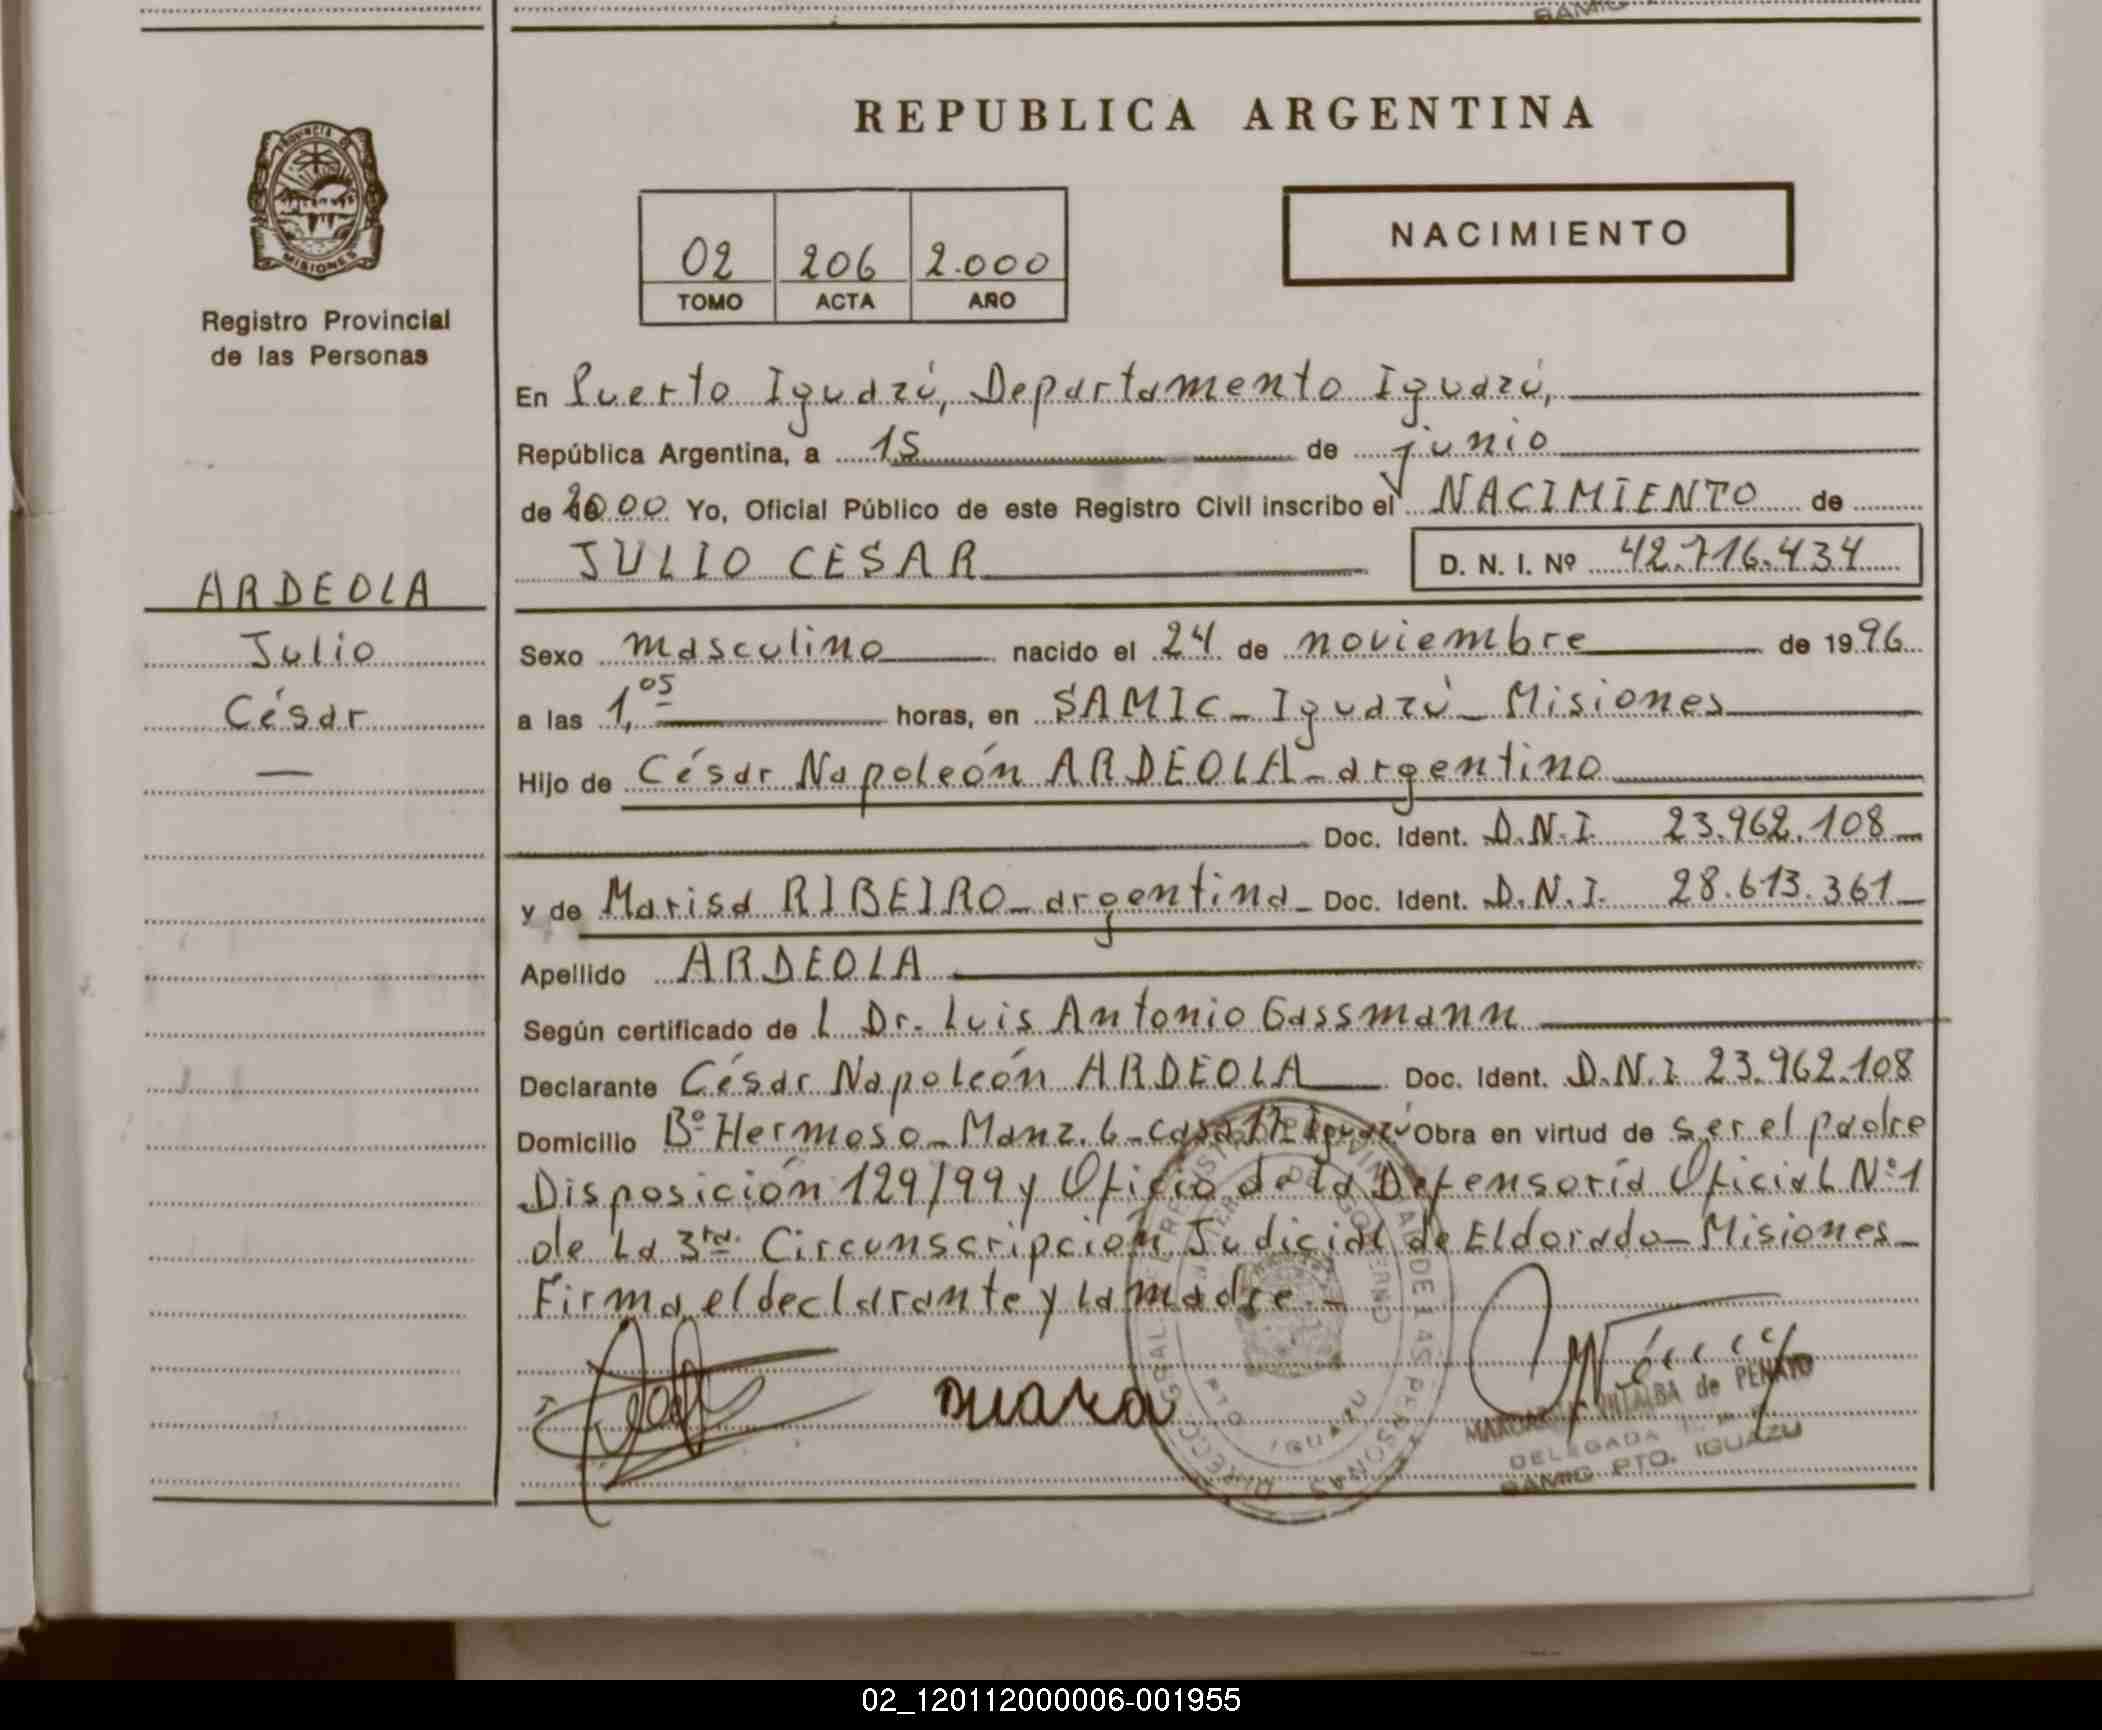 SAMIC
REPUBLICA ARGENTINA
PROVINCIA DE
MISIONES
Registro Provincial
de las Personas
02 206 2.000
TOMO ACTA AÑO
NACIMIENTO
En Puerto Iguazú, Departamento Iguazú,
República Argentina, a 15 de junio
de 2000 Yo, Oficial Público de este Registro Civil inscribo el NACIMIENTO de
JULIO CESAR D. N. I. Nº 42.716.434
ARDEOLA
Julio
César
Sexo masculino nacido el 24 de noviembre de 1996
a las 1,05 horas, en SAMIC - Iguazú - Misiones
Hijo de César Napoleón ARDEOLA - argentino
Doc. Ident. D.N.I. 23.962.108
y de Marisa RIBEIRO - argentina - Doc. Ident. D.N.I. 28.613.361
Apellido ARDEOLA
Según certificado de l Dr. Luis Antonio Gassmann
Declarante César Napoleón ARDEOLA Doc. Ident. D.N.I. 23.962.108
Domicilio Bº Hermoso - Manz. 6 - casa 17 Iguazú Obra en virtud de ser el padre
Disposición 129/99 y Oficio de la Defensoría Oficial Nº 1
de la 3ra. Circunscripción Judicial de Eldorado - Misiones -
Firma el declarante y la madre. -
DELEGADA
SAMIC PTO. IGUAZU
02_120112000006-001955